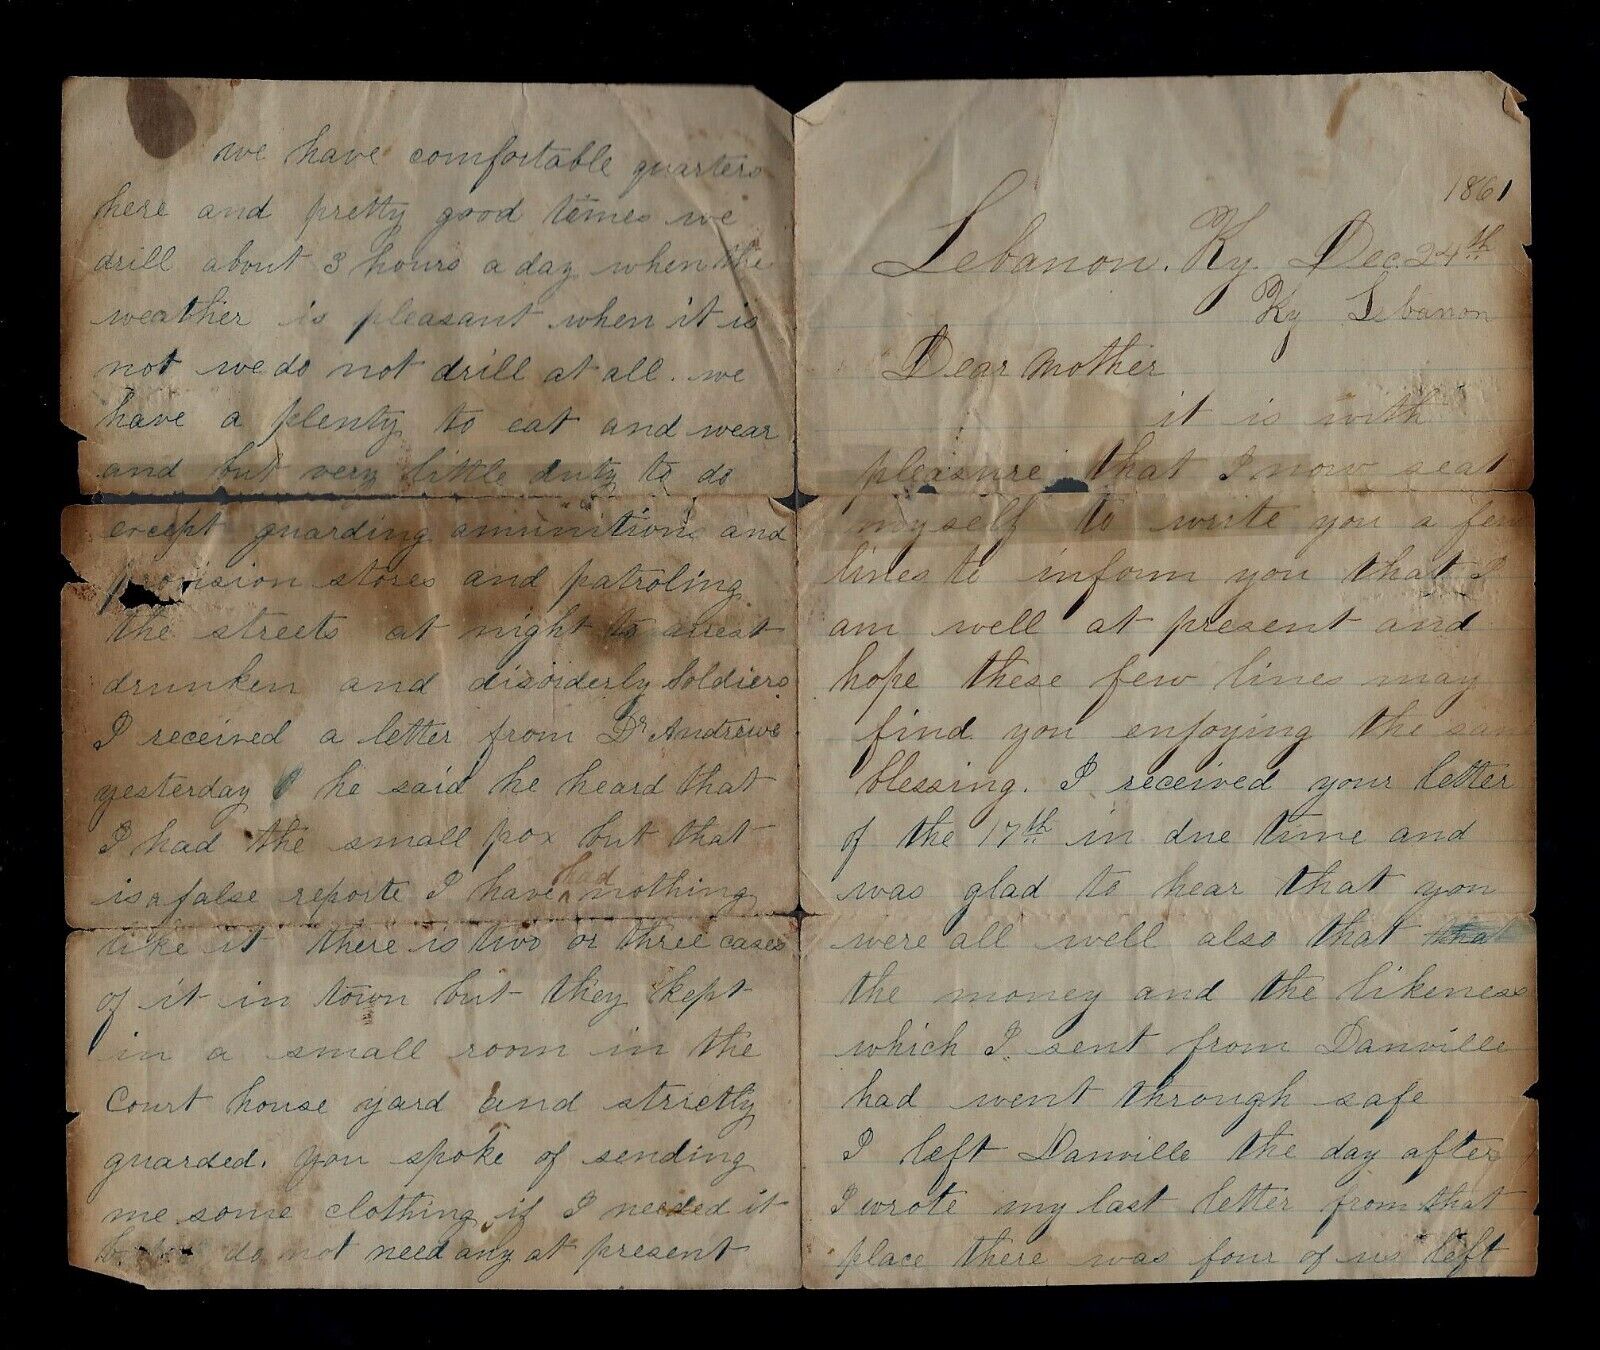 1861
Lebanon. Ky. Dec. 24th
Ky Lebanon
Dear Mother
it is with
pleasure that I now seat
myself to write you a few
lines to inform you that I
am well at present and
hope these few lines may
find you enjoying the same
blessing. I received your letter
of the 17th in due time and
was glad to hear that you
were all well also that that
the money and the likeness
which I sent from Danville
had went through safe
I left Danville the day after
I wrote my last letter from that
place there was four of us left
we have comfortable quarters
here and pretty good times we
drill about 3 hours a day when the
weather is pleasant when it is
not we do not drill at all. we
have a plenty to eat and wear
and but very little duty to do
except guarding amunition and
provision stores and patroling
the streets at night to arrest
drunken and disorderly Soldiers
I received a letter from Dr Andrews
yesterday he said he heard that
I had the small pox but that
is a false reporte I have had nothing
like it there is two or three cases
of it in town but they kept
in a small room in the
Court house yard and strictly
guarded. you spoke of sending
me some clothing if I needed it
do not need any at present